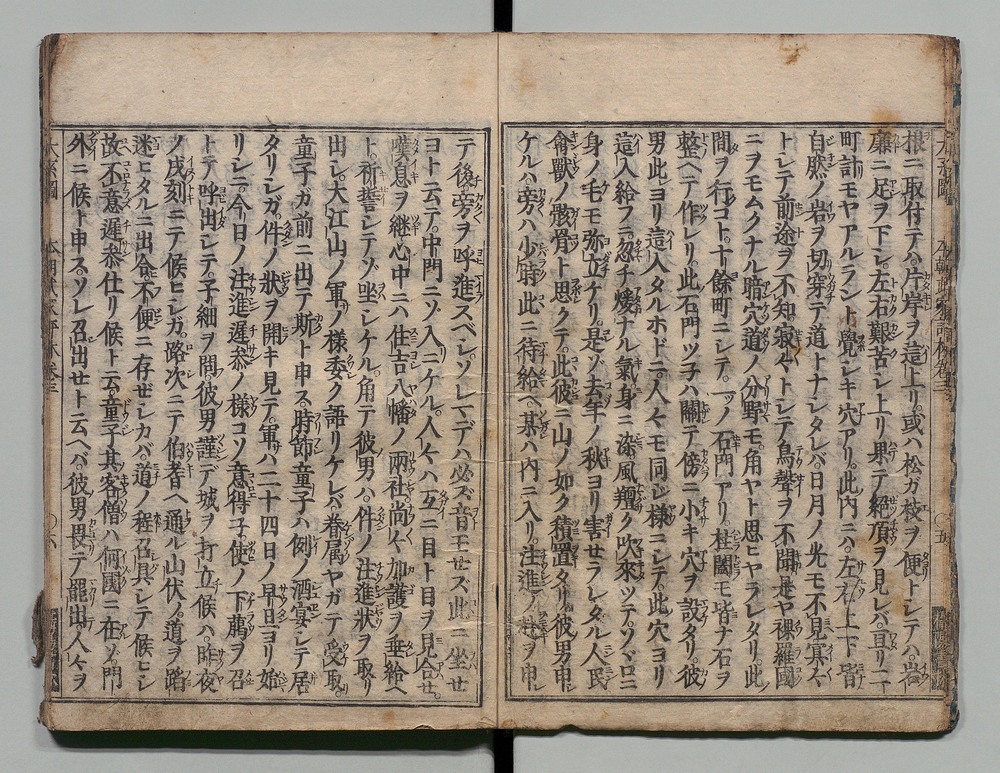 根ニ取付テハ片岸ヲ這上リ。或ハ松ガ枝ヲ便トシテハ岩
廉ニ足ヲ下シ。左右艱苦シ上リ果テ絶頂ヲ見レバ亘リ二
町計モヤアルラント覺シキ穴アリ。此内ニハ左右上下皆
自然ノ岩ヲ切穿テ道トナシタレバ。日月ノ光モ不見冥々
トシテ前途ヲ不知。寂々トシテ鳥聲ヲ不聞。是ヤ裸羅國
ニヲモムクナル暗穴道ノ分野モ。角ヤト思ヒヤラレタリ。此
間ヲ行コト。十餘町ニシテ。一ツノ石門アリ。柱闔モ皆ナ石ヲ
整ヘテ作レリ。此石門ツ子ハ關テ傍ニ小キ穴ヲ設タリ。彼
男此ヨリ這入タルホドニ。人々モ同シ樣ニシテ此穴ヨリ
這入給フニ。忽チ煖ナル氣身ニ染。風羶ク吹來ツテ。ソヾロニ
身ノ毛モ弥立ケリ。是ゾ去年ノ秋ヨリ害セラレタル人民
禽獸ノ骸骨ト思クテ。此彼ニ山ノ如ク積置タリ。彼男申
ケルハ。旁ハ少時此ニ待給ヘ。某ハ内ニ入リ。注進ノ狀ヲ申
テ後旁ヲ呼進スベシ。ソレマデハ必ズ音セズ此ニ坐せ
ヨト云テ。中門ニゾ入ニケル。人々ハ互ニ目ト目ヲ見合せ。
嘆息ヲ継。心中ニハ住吉八幡ノ兩社尚々加護ヲ垂給ヘ
ト。祈誓シテゾ坐シケル。角テ彼男ハ。件ノ注進狀ヲ取リ
出シ。大江山ノ軍ノ樣委ク語リケレバ。眷属ヤガテ受取
童子ガ前ニ出テ斯ト申ス。時節童子ハ例ノ酒宴シテ居
タリシガ。件ノ狀ヲ開キ見テ。軍ハ二十四日ノ早旦ヨリ始
リシニ。今日ノ注進遲參ノ樣コソ意得子。使ノ下﨟ヲ召
トテ。呼出シテ。子細ヲ問。彼男謹デ城ヲ打立候ハ。昨夜
ノ戌刻ニテ候ヒシガ。路次ニテ伯耆ヘ通ル山伏ノ道ヲ踏
迷ヒタルニ出合。不便ニ存ぜシカバ。道ノ程召具シテ候ヒシ
故。不意遲參仕リ候ト云。童子其客僧ハ何國ニ在ゾ。門
外ニ候ト申ス。ソレ召出せト云ヘバ。彼男畏テ罷出。人々ヲ